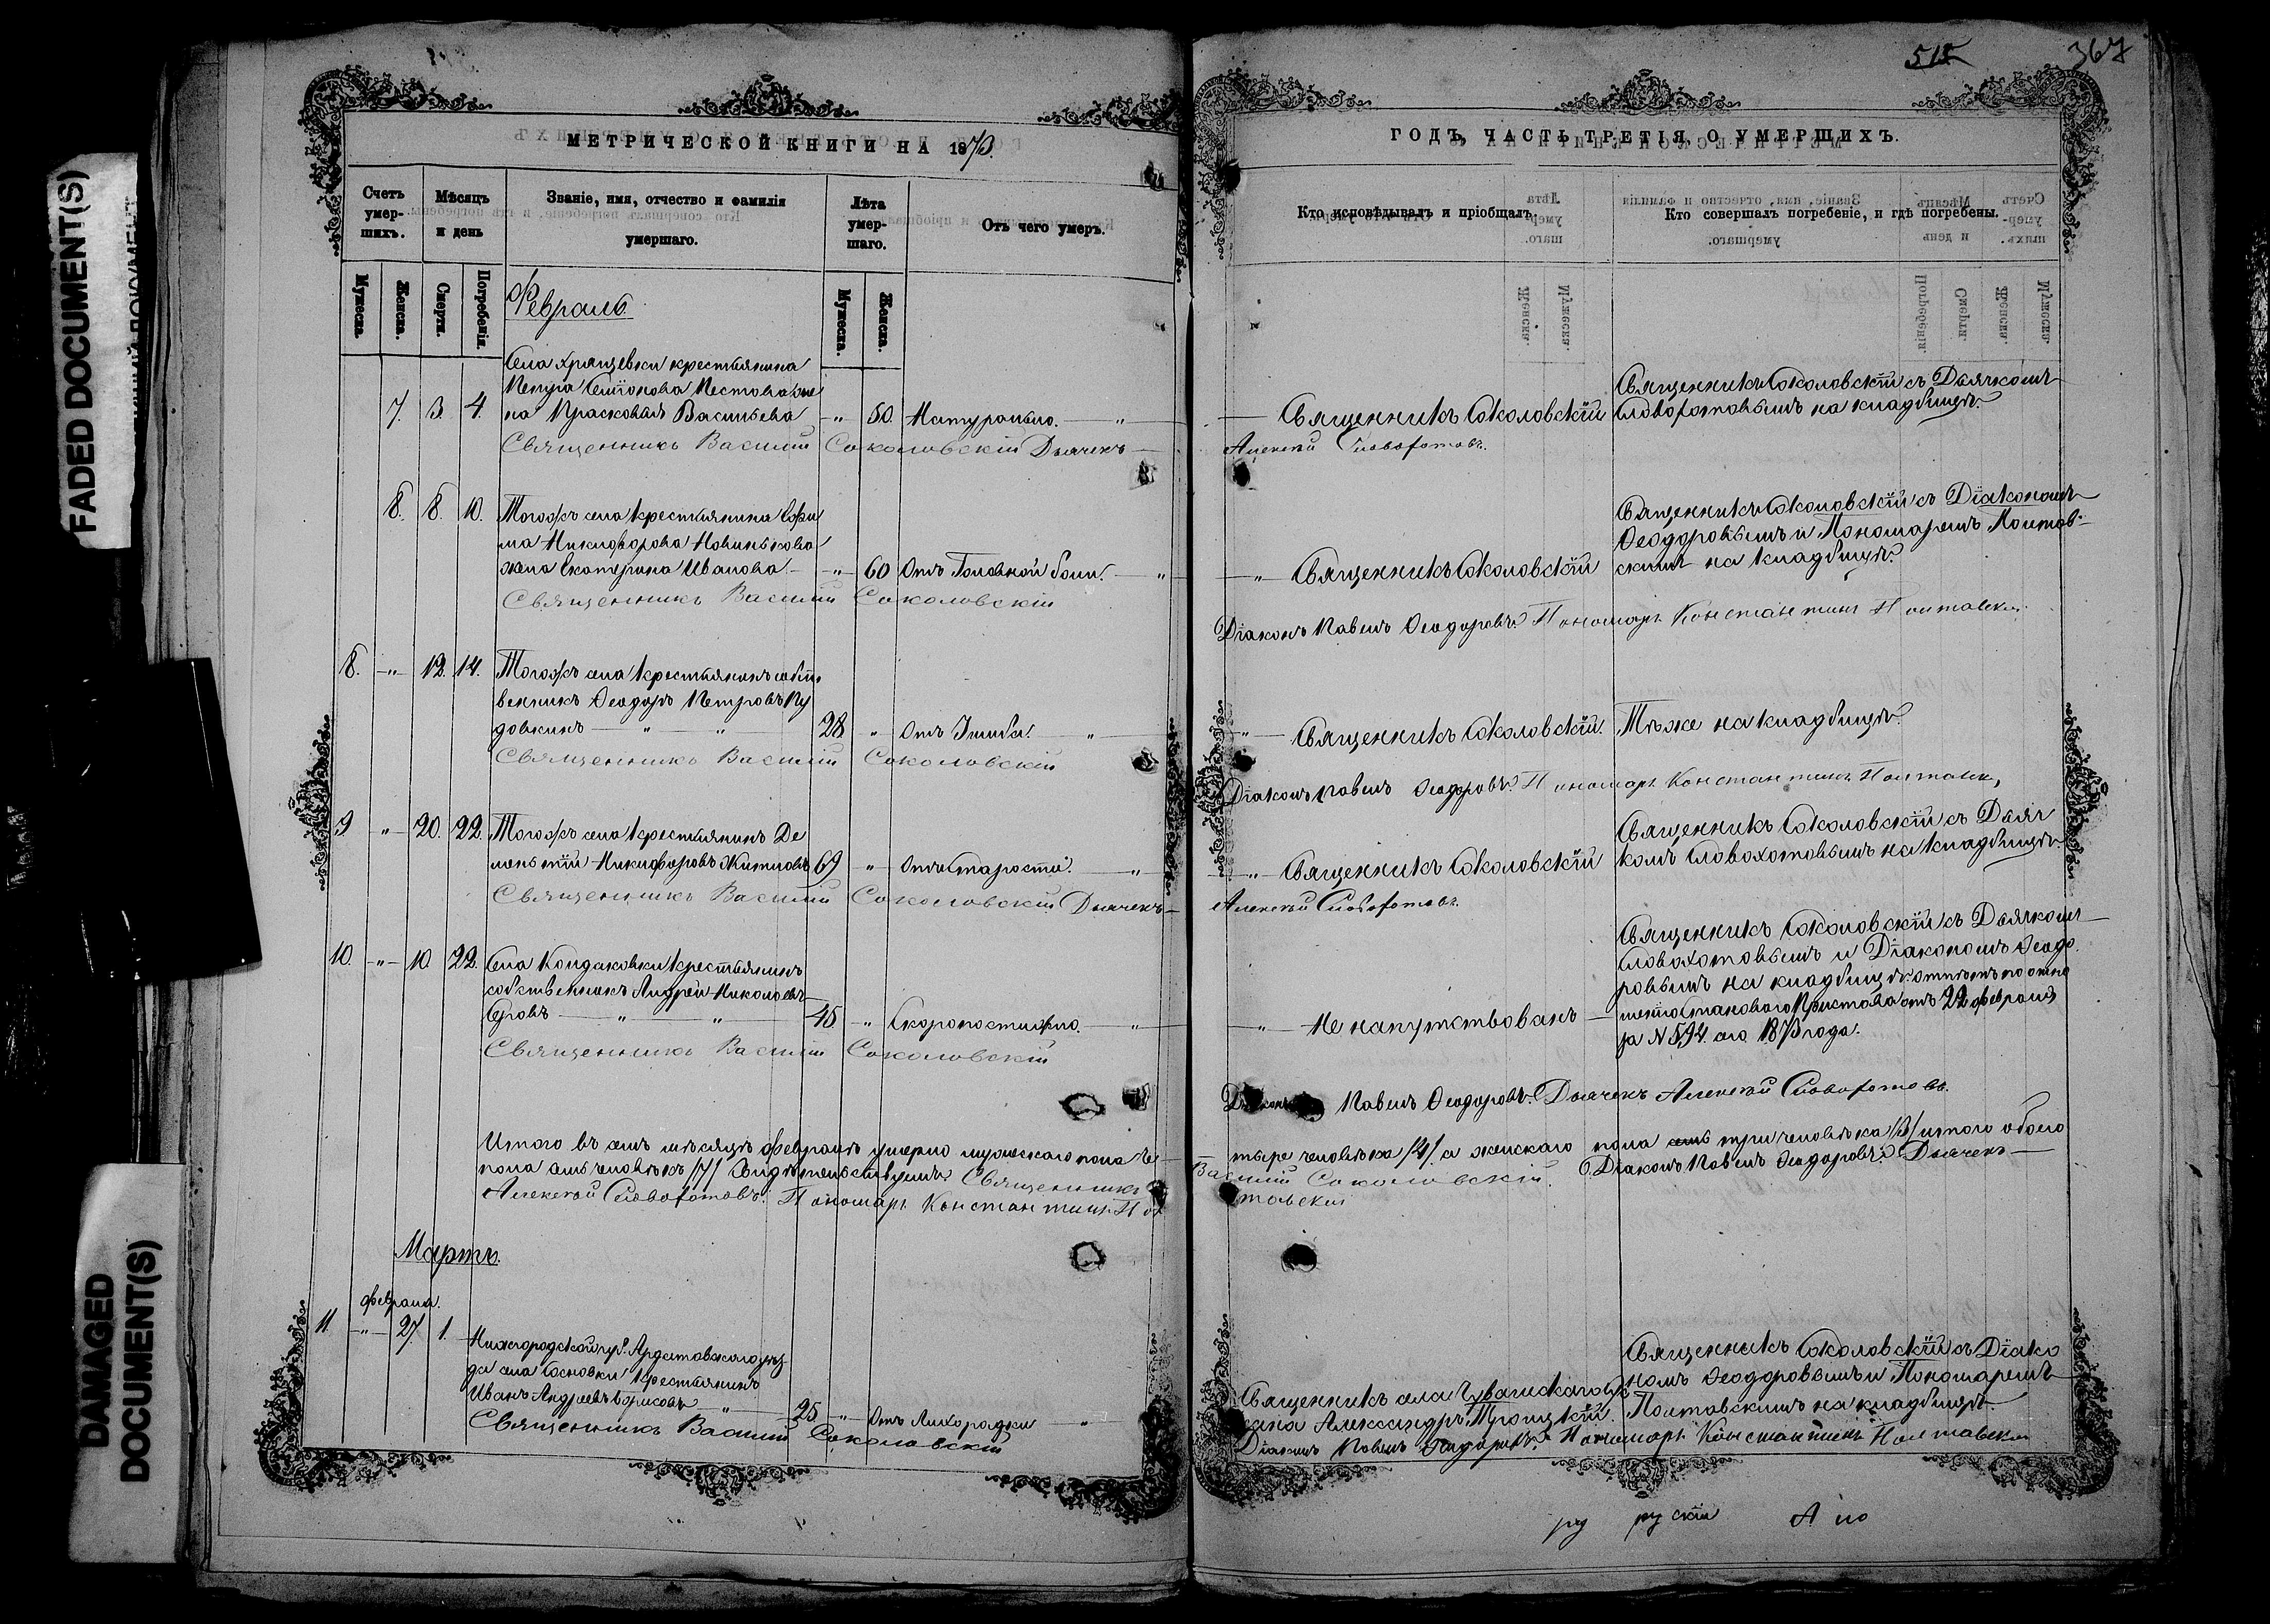 515 367
FADED DOCUMENT(S)
DAMAGED
DOCUMENT(S)
МЕТРИЧЕСКОЙ КНИГИ НА 1873.
Счетъ умер-шихъ.
Мѣсяцъ и день
Званіе, имя, отчество и фамилія умершаго.
Лѣта умер-шаго.
Отъ чего умеръ.
Мужеска.
Женска.
Смерти.
Погребенія.
Мужеска.
Женска.
Февраль.
Села Хрящевки крестьянина
7. 3. 4.
на Прасковья Васильева — „ 50. Натурально. — „
Священникъ Василій Соколовскій Дьячекъ —
8. 8. 10. Тогожъ села крестьянина Ефи
ма Никифорова Новинькова
жена Екатерина Иванова — „ 60 Отъ Головной боли. — „
Священникъ Василій Соколовскій
8. — „ — 12. 14. Тогожъ села крестьянинъ собст
венникъ Ѳеодоръ Петровъ Пу
довкинъ — „ „ 28 „ Отъ — „
Священникъ Василій Соколовскій
9 „ — 20. 22. Тогожъ села крестьянинъ Де
ментій Никифоровъ Житловъ 69 „ Отъ Старости. — „
Священникъ Василій Соколовскій Дьячекъ —
10. — „ — 10. 22. Села Кондаковки крестьянинъ
собственникъ Андрей Николаевъ
— „ „ 45 „ Скоропостижно. „
Священникъ Василій Соколовскій
Итого въ семъ мѣсяцѣ февралѣ умерло мужескаго пола че
пола семь человѣкъ /7/ Свидѣтельствуемъ Священникъ
Алексѣй Словохотовъ. Пономарь Константинъ Пол
Мартъ.
февраля.
11. — „ — 27. 1. Нижгородской губ. Ардатовскаго уѣз
да села Сосновки крестьянинъ
Иванъ Андреевъ Борисовъ — „ — 25 „ Отъ Лихорадки „
Священникъ Василій Соколовскій
ГОДЪ, ЧАСТЬ ТРЕТІЯ, О УМЕРШИХЪ.
Кто исповѣдывалъ и пріобщалъ.
Кто совершалъ погребеніе, и гдѣ погребены.
Священникъ Соколовскій съ Дьячкомъ
— Священникъ Соколовскій Словохотовымъ на кладбищѣ.
Алексѣй Словохотовъ.
Священникъ Соколовскій съ Діакономъ
Ѳеодоровымъ и Пономаремъ Полтав-
— „ Священникъ Соколовскій скимъ на кладбищѣ.
Діаконъ Павелъ Ѳеодоровъ. Пономарь Константинъ Полтавскій.
„ — Священникъ Соколовскій. Тѣже на кладбищѣ.
Діаконъ Павелъ Ѳеодоровъ. Пономарь Константинъ
Священникъ Соколовскій съ Дьяч
— „ Священникъ Соколовскій комъ Словохотовымъ на кладбищѣ
Алексѣй Словохотовъ.
Священникъ Соколовскій съ Дьячкомъ
Словохотовымъ и Діакономъ Ѳеодо
ровымъ на кладбищѣ отпѣтъ по отно
— „ — Не напутствованъ — шенію Становаго Пристава отъ 22 февраля
за № 594. сего 1873 года.
Діаконъ Павелъ Ѳеодоровъ. Дьячекъ Алексѣй Словохотовъ.
тыре человѣка /4/. а женскаго пола три человѣка /3/ итого обоего
Василій Соколовскій. Діаконъ Павелъ Ѳеодоровъ. Дьячекъ —
тавскій
Священникъ Соколовскій съ Діако
Священникъ села Чувашскаго номъ Ѳеодоровымъ и Пономаремъ
Александръ Троицкій. Полтавскимъ на кладбищѣ.
Діаконъ Павелъ Ѳеодоровъ. Пономарь Константинъ Полтавскій
ру ру скій А по